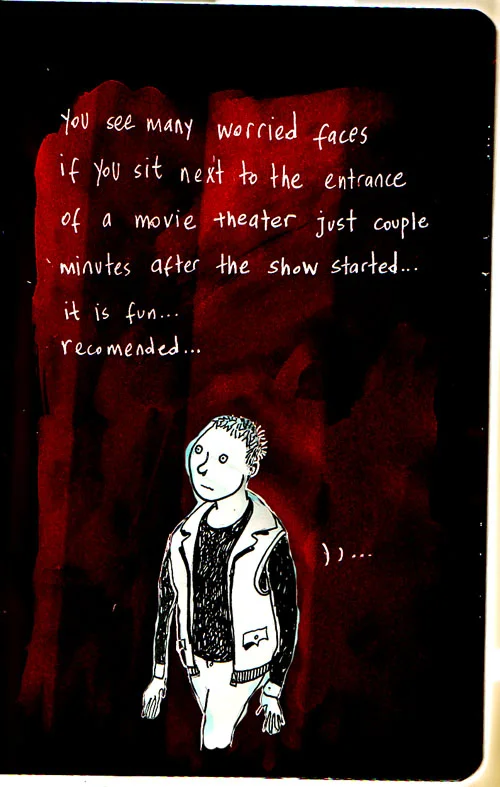 you see many worried faces
if you sit next to the entrance
of a movie theater just couple
minutes after the show started...
it is fun...
recomended...
))...